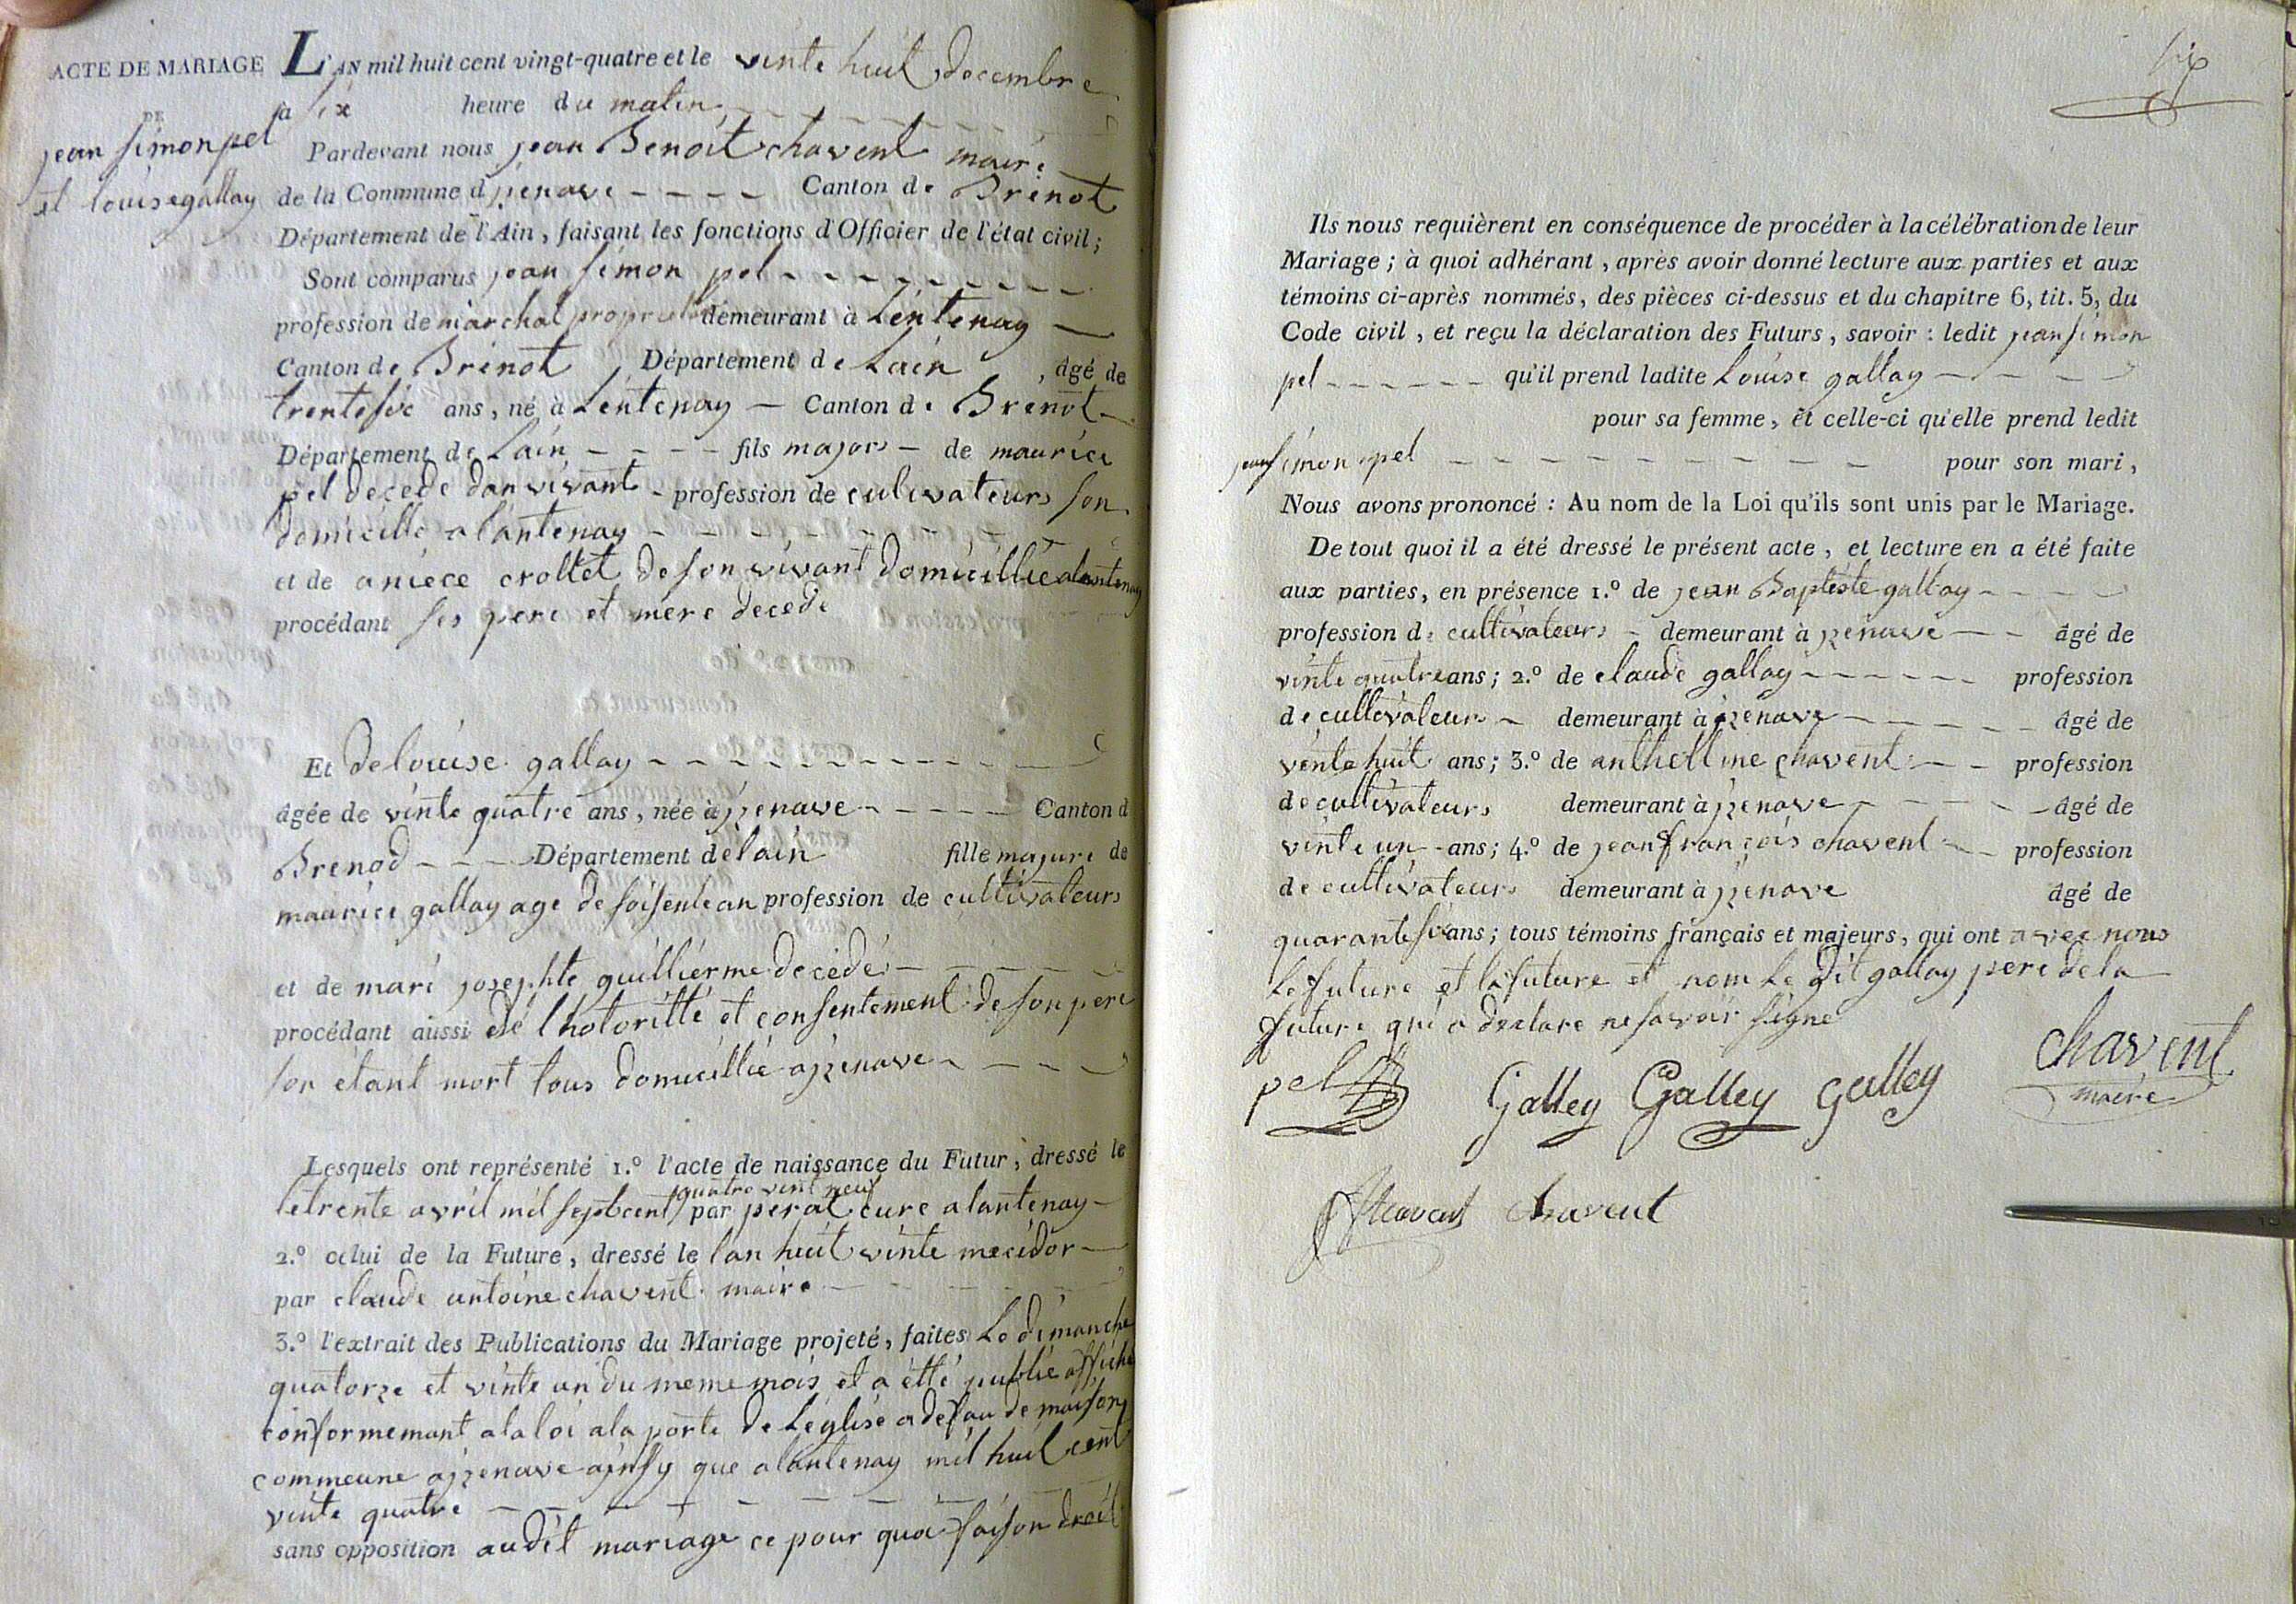 ACTE DE MARIAGE
DE
jean simon pel
et louise gallay
L'AN mil huit cent vingt-quatre et le vinte huit decembre
a six heure du matin
Pardevant nous jean Benoit chavent maire
de la Commune d'jzenave Canton de Brénot
Département de l'Ain, faisant les fonctions d'Officier de l'état civil;
Sont comparus jean simon pel
profession de marchal propriétaire demeurant à Lentenay
Canton de Brénot Département de Lain, âgé de
trente six ans, né à Lentenay Canton de Brénot
Département de Lain fils majors de maurice
pel decede don vivant profession de culivateurs son
domicille a lantenay
et de aniece crottet de son vivant domicillie a lantenay
procédant ses pere et mere decede
Et de louise gallay
âgée de vinte quatre ans, née à jzenave Canton d
Brenod Département de lain fille majure de
maurice gallay age de soisente an profession de cultivateurs
et de mari josephte guillierme decédé
procédant aussi de l'hotoritté et consentement de son pere
son étant mort tous domicillié a jzenave
Lesquels ont représenté 1.º l'acte de naissance du Futur, dressé le
quatre vint neuf
le trente avril mil sept cent par perat cure a lantenay
2.º celui de la Future, dressé le lan huit vinte mecidor
par claude antoine chavent maire
3.º l'extrait des Publications du Mariage projeté, faites Le dimanche
quatorze et vinte un du meme mois et a étté publié affiché
conformemant a la loi a la porte de Léglise a defau de maison
commeune a jzenave ainsy que a lantenay mil huit cent
vinte quatre
sans opposition au dit mariage ce pour quoi faison droit
six
Ils nous requièrent en conséquence de procéder à la célébration de leur
Mariage; à quoi adhérant, après avoir donné lecture aux parties et aux
témoins ci-après nommés, des pièces ci-dessus et du chapitre 6, tit. 5, du
Code civil, et reçu la déclaration des Futurs, savoir: ledit jean simon
pel qu'il prend ladite Louise gallay
pour sa femme, et celle-ci qu'elle prend ledit
jean simon pel pour son mari,
Nous avons prononcé: Au nom de la Loi qu'ils sont unis par le Mariage.
De tout quoi il a été dressé le présent acte, et lecture en a été faite
aux parties, en présence 1.º de jean Baptiste gallay
profession de cultivateurs demeurant à jzenave âgé de
vinte quatre ans; 2.º de claude gallay profession
de cultivateurs demeurant à jzenave âgé de
vinte huit ans; 3.º de anthellme chavent profession
de cultivateurs demeurant à jzenave âgé de
vinte un ans; 4.º de jean françois chavent profession
de cultivateurs demeurant à jzenave âgé de
quarante six ans; tous témoins français et majeurs, qui ont avec nous
Le future et la future et nom Le dit gallay pere de la
future qui a declare ne savoir signe
pel Galley Galley Galley chavent
maire
Chavent